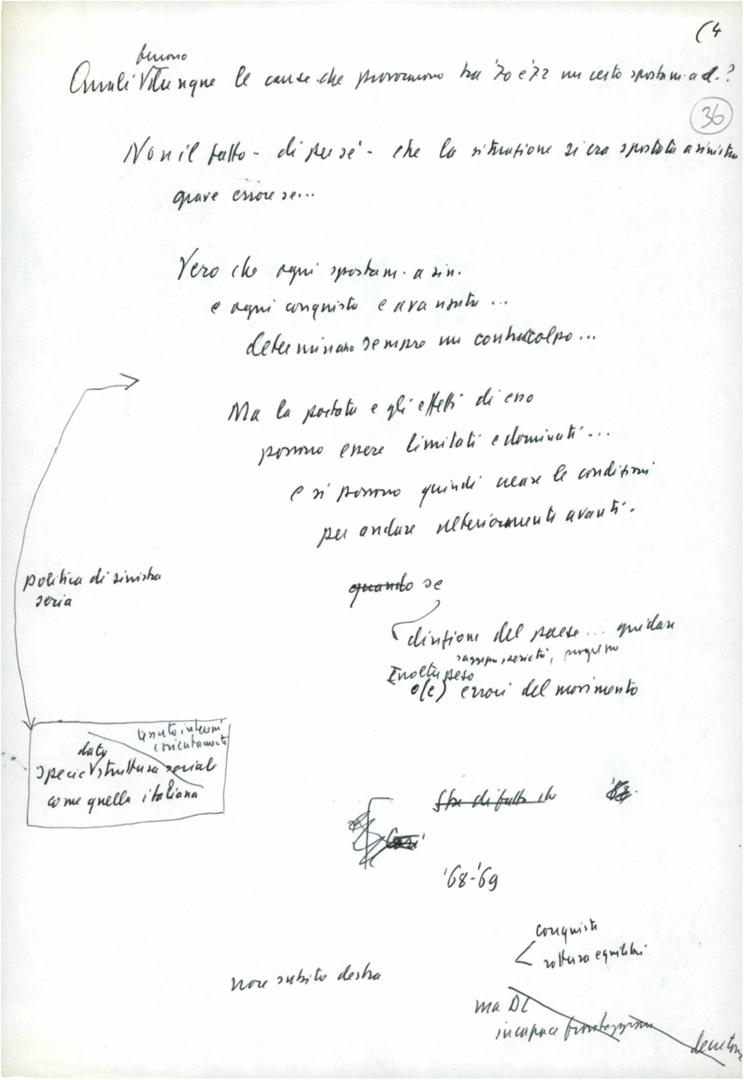 (4
furono
Quali dunque le cause che provocarono tra '70 e '72 un certo spostam. a d.?
36
Non il fatto - di per sé - che la situazione si era spostata a sinistra
grave errore se...
Vero che ogni spostam. a sin.
e ogni conquista e avanzata ...
determinano sempre un contraccolpo...
Ma la portata e gli effetti di esso
possono essere limitati e dominati ...
e si possono quindi creare le condizioni
per andare ulteriormente avanti.
quando se
politica di sinistra
seria
direzione del paese ... guidare
serietà, progresso
Inoltre peso
o(e) errori del movimento
interni
e orientamenti
data
specie struttura sociale
come quella italiana
che di fatto
'68-'69
conquiste
rottura equilibri
non subito destra
ma DC
incapace